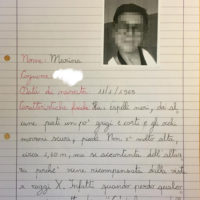 Nome: Marina
Cognome:
Data di nascita 11/1/1965
Caratteristiche fisiche: Ha i capelli neri, da al
cune parti un po' grigi e corti e gli occhi
marroni scuri, piccoli. Non e' molto alta,
circa 1,60 m, ma se accontenta dell'altez
za perché viene ricompensata dalla vista
a raggi X. Infatti quando perdo qualco